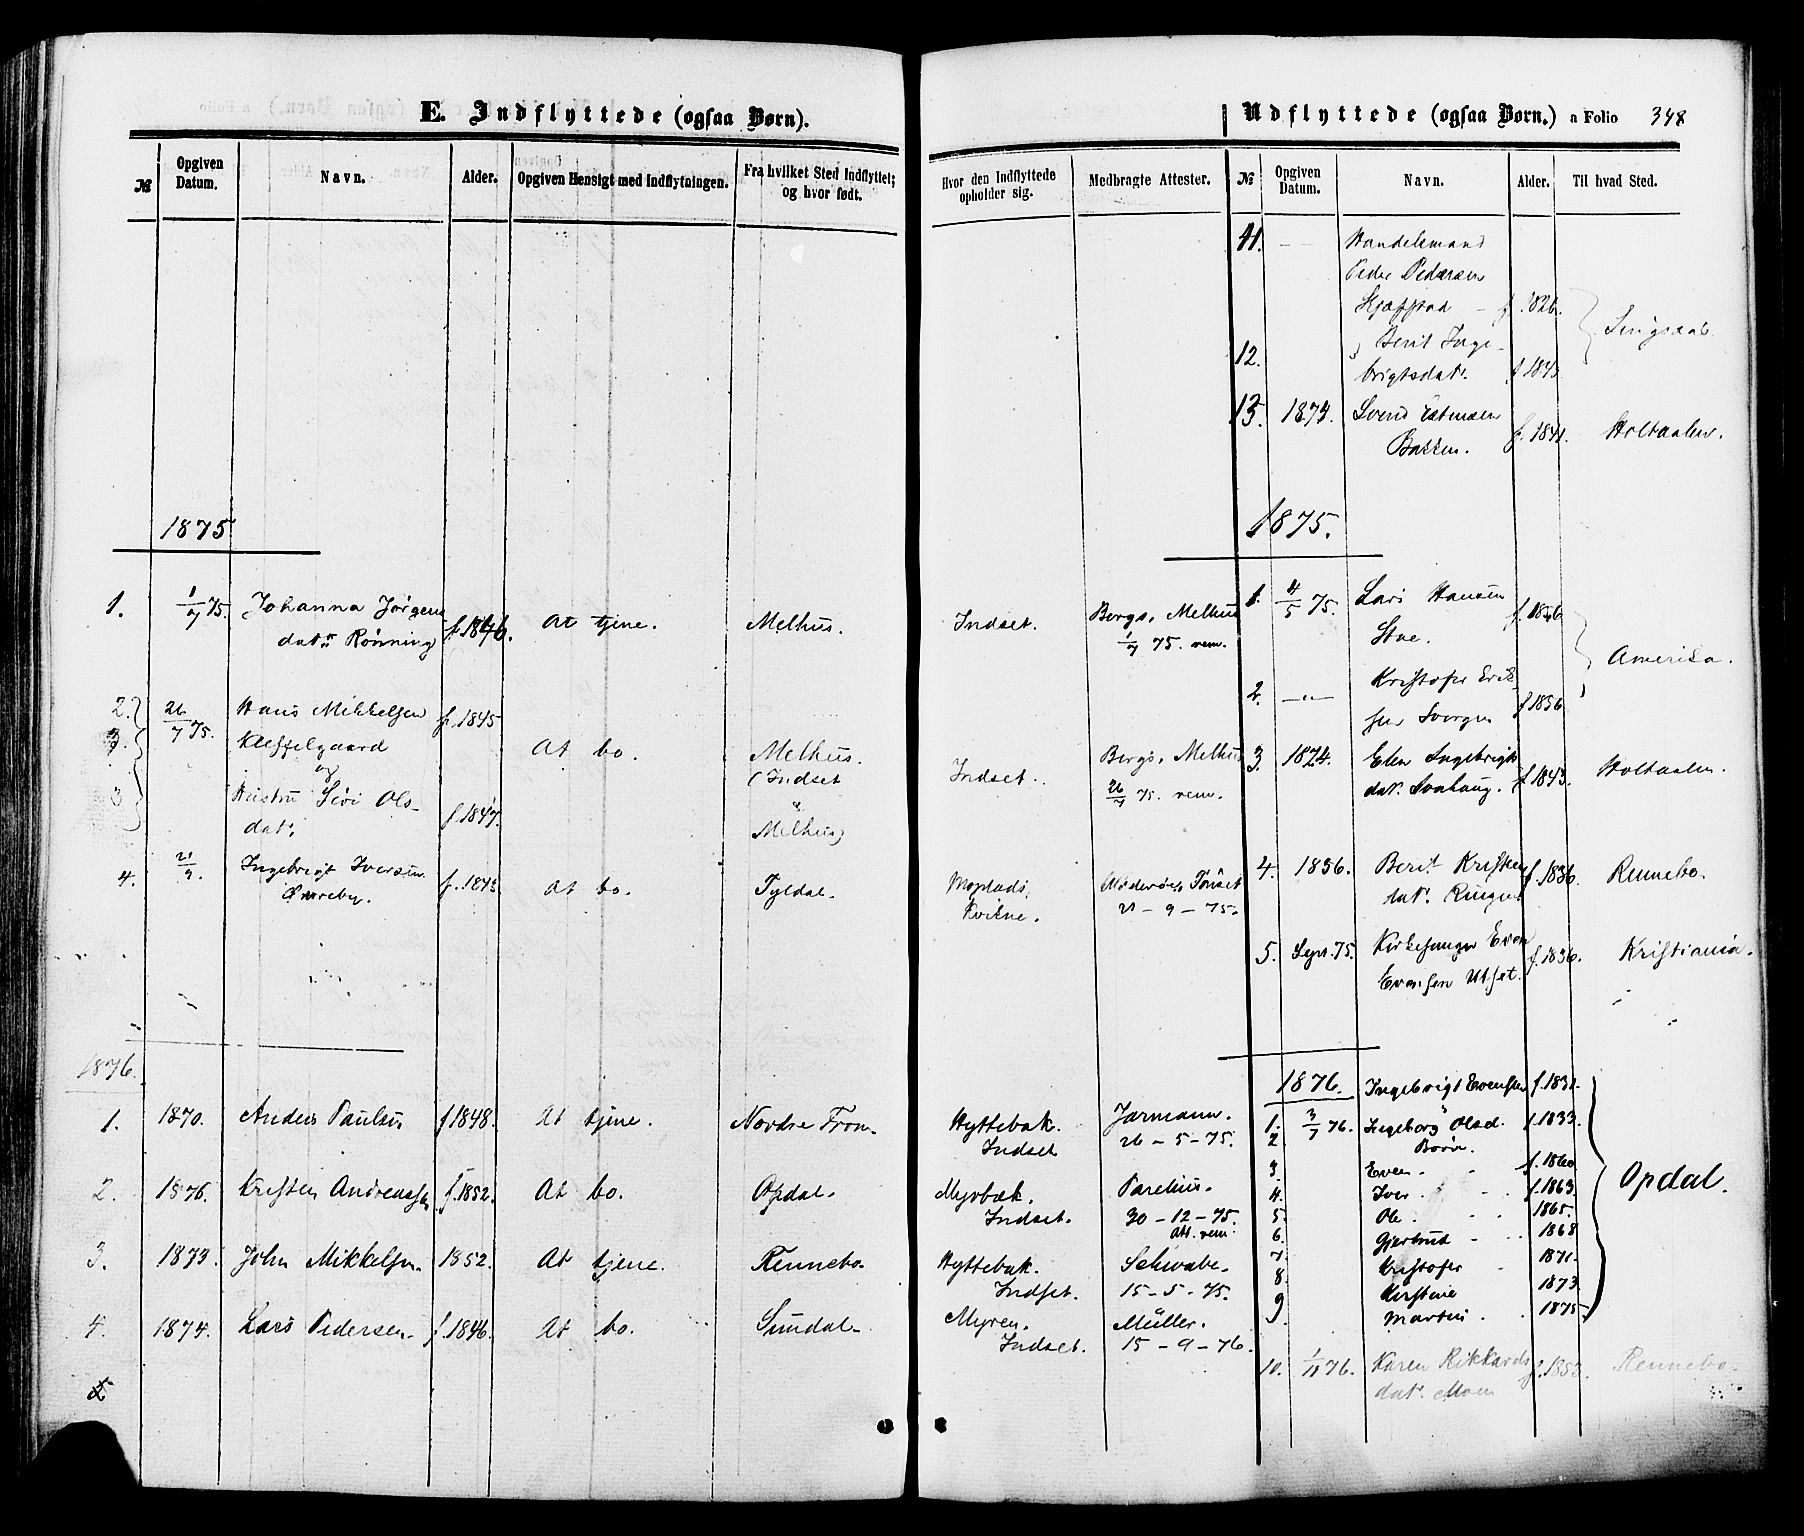 E. Indflyttede (ogsaa Børn).
№ Opgiven Datum. Navn. Alder. Opgiven Hensigt med Indflytningen. Fra hvilket Sted Indflyttet; og hvor født.
1875
1. 1/7 75. Johanna Jørgens f. 1846. At tjene. Melhus.
datr Rønning
2. 26/7 75. Hans Mikkelsen f. 1845
Kleffelgaard At bo. Melhus.
og (Indset
3 Hustru Sivi Ols- f 1847. &
dat. Melhus)
4. 21/9. Ingebrigt Iversen f. 1843 At bo. Tyldal.
1876.
1. 1870. Anders Paulsen f 1848. At tjene. Nordre Fron.
2. 1876. Kristen Andreassen f. 1852. At bo. Opdal.
3. 1873. John Mikkelsen. 1852. At tjene. Rennebo.
4. 1874. Lars Pedersen. f. 1846. At bo. Sundal.
Udflyttede (ogsaa Børn.) a Folio 348
Hvor den Indflyttede opholder sig. Medbragte Attester. № Opgiven Datum. Navn. Alder. Til hvad Sted.
11. — — Handelsmand
Peder Pedersen
f. 1826. Singsaas
12. Berit Inge-
brigtsdatr. f 1843
13. 1874. Svend Estensen
Bakken. f. 1841. Holtaalen.
1875.
Indset. Bergs, Melhus
1/7 75. rem. 1. 4/5 75. Lars Hansen f. 1856
Stue. Amerika.
2. —"— Kristofer Erik-
sen f 1856
Indset. Bergs, Melhus
26/7 75. rem. 3. 1874. Elen Ingebrigts
dat. f 1843. Holtaalen.
Kvikne. Tønset
21 – 9 – 75. 4. 1856. Berit Kristen
dat. f. 1836. Rennebo.
5. Sept. 75. Kirkesanger Even
Evensen Utset. f. 1836. Kristiania.
1876. Ingebrigt Evensen f. 1831.
Hyttebak. Jarmann. 1. 3/7 76. Ingeborg Olsd. f. 1833.
Indset 26 – 5 – 75. 2. Børn.
3. Even. f. 1860
Myrbæk. Parelius. 4. Iver. f. 1863.
Indset. 30 – 12 – 75. 5. Ole. 1865.
Att. rem. 6. Gjertrud 1868
Opdal.
Hyttebak. Schwabe. 7. Kristofer 1871.
Indset. 15 – 5 – 75. 8. Kirstine 1873.
Myren. Müller. 9. Martin 1875
Indset. 15 – 9 – 76.
10. 1/11 76. Karen Rikkards f. 1853. Rennebo.
dat. Moen